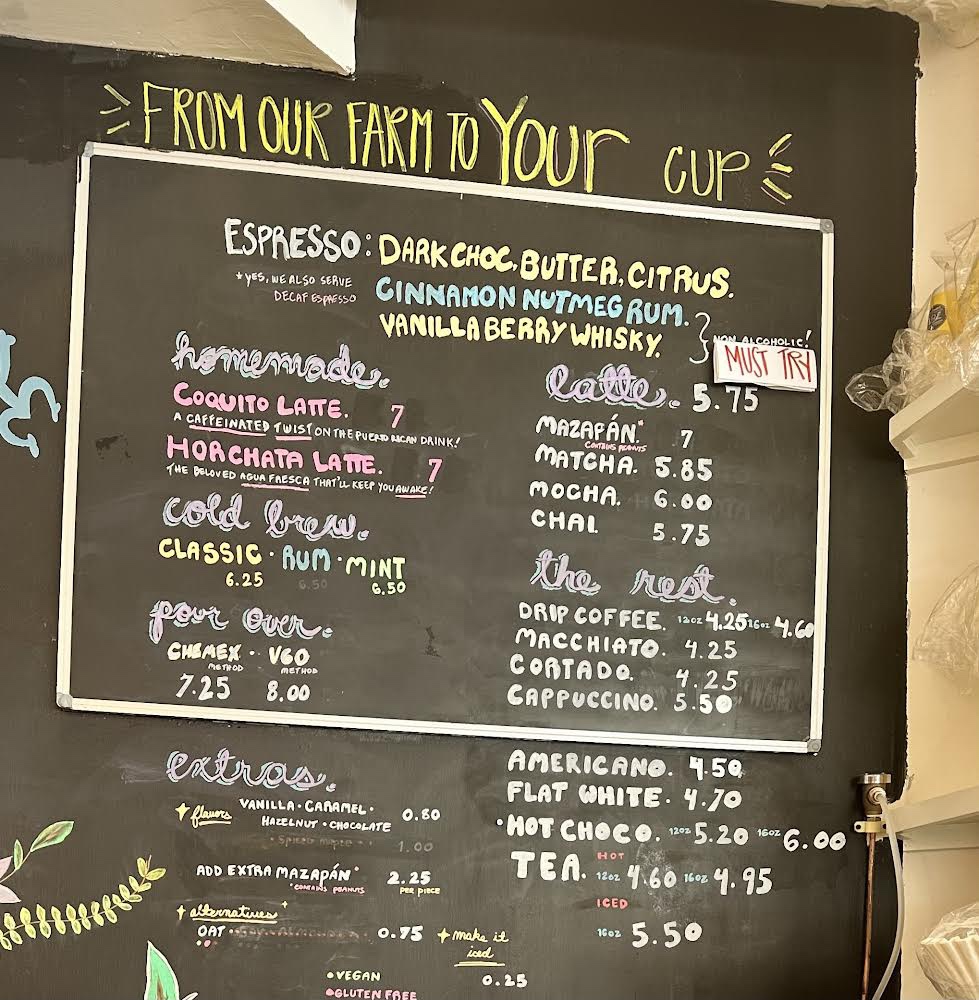 FROM OUR FARM TO YOUR CUP
ESPRESSO: DARK CHOC, BUTTER, CITRUS.
*YES, WE ALSO SERVE
DECAF ESPRESSO
CINNAMON NUTMEG RUM.
VANILLA BERRY WHISKY.
NON ALCOHOLIC!
MUST TRY
homemade.
COQUITO LATTE. 7
A CAFFEINATED TWIST ON THE PUERTO RICAN DRINK!
HORCHATA LATTE. 7
THE BELOVED AGUA FRESCA THAT'LL KEEP YOU AWAKE!
cold brew.
CLASSIC · RUM · MINT
6.25 6.50 6.50
pour over.
CHEMEX · V60
METHOD METHOD
7.25 8.00
latte. 5.75
MAZAPÁN.* 7
CONTAINS PEANUTS
MATCHA. 5.85
MOCHA. 6.00
CHAI 5.75
the rest.
DRIP COFFEE. 12oz 4.25 16oz 4.60
MACCHIATO. 4.25
CORTADO. 4.25
CAPPUCCINO. 5.50
AMERICANO. 4.50
FLAT WHITE. 4.70
·HOT CHOCO. 12oz 5.20 16oz 6.00
TEA. HOT
12oz 4.60 16oz 4.95
ICED
16oz 5.50
extras.
flavors VANILLA · CARAMEL · 0.80
HAZELNUT · CHOCOLATE
1.00
ADD EXTRA MAZAPÁN* 2.25
*CONTAINS PEANUTS PER PIECE
alternatives
OAT 0.75
make it
iced
0.25
•VEGAN
•GLUTEN FREE